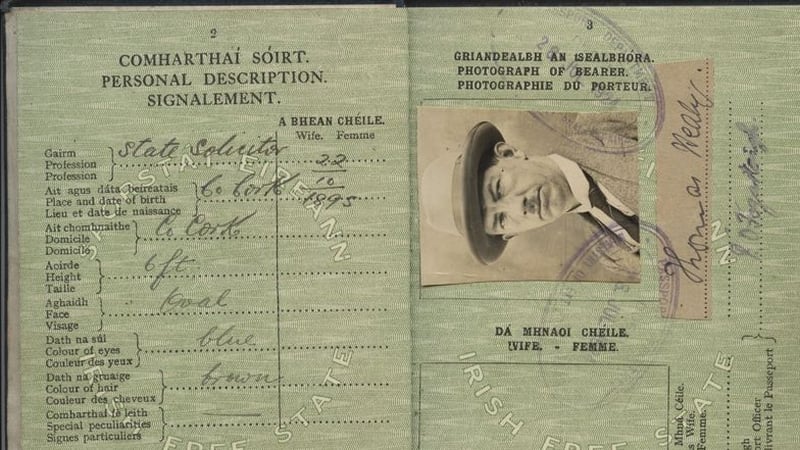 2
COMHARTHAÍ SÓIRT.
PERSONAL DESCRIPTION.
SIGNALEMENT.
A BHEAN CHÉILE.
Wife. Femme
Gairm
Profession
Profession
State Solicitor
22
10
1895
Ait agus dáta beireatais
Place and date of birth
Lieu et date de naissance
Co Cork
Ait chomhnuithe
Domicile
Domicile
Co Cork
Aoirde
Height
Taille
6 ft
Aghaidh
Face
Visage
Oval
Dath na súl
Colour of eyes
Couleur des yeux
blue
Dath na gruaige
Colour of hair
Couleur des cheveux
brown
Comharthaí fé leith
Special peculiarities
Signes particuliers
SAORSTÁT ÉIREANN
IRISH FREE STATE
3
GRIANDEALBH AN tSEALBHÓRA.
PHOTOGRAPH OF BEARER.
PHOTOGRAPHIE DU PORTEUR.
Thomas Healy.
DÁ MHNAOI CHÉILE.
WIFE. - FEMME.
IRISH FREE STATE
Mhná Céile.
Wife.
Femme.
Officer
livrant le Passeport